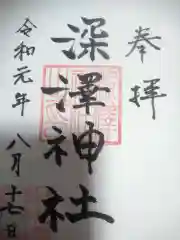 奉拝
深澤神社
令和元年
八月十七日